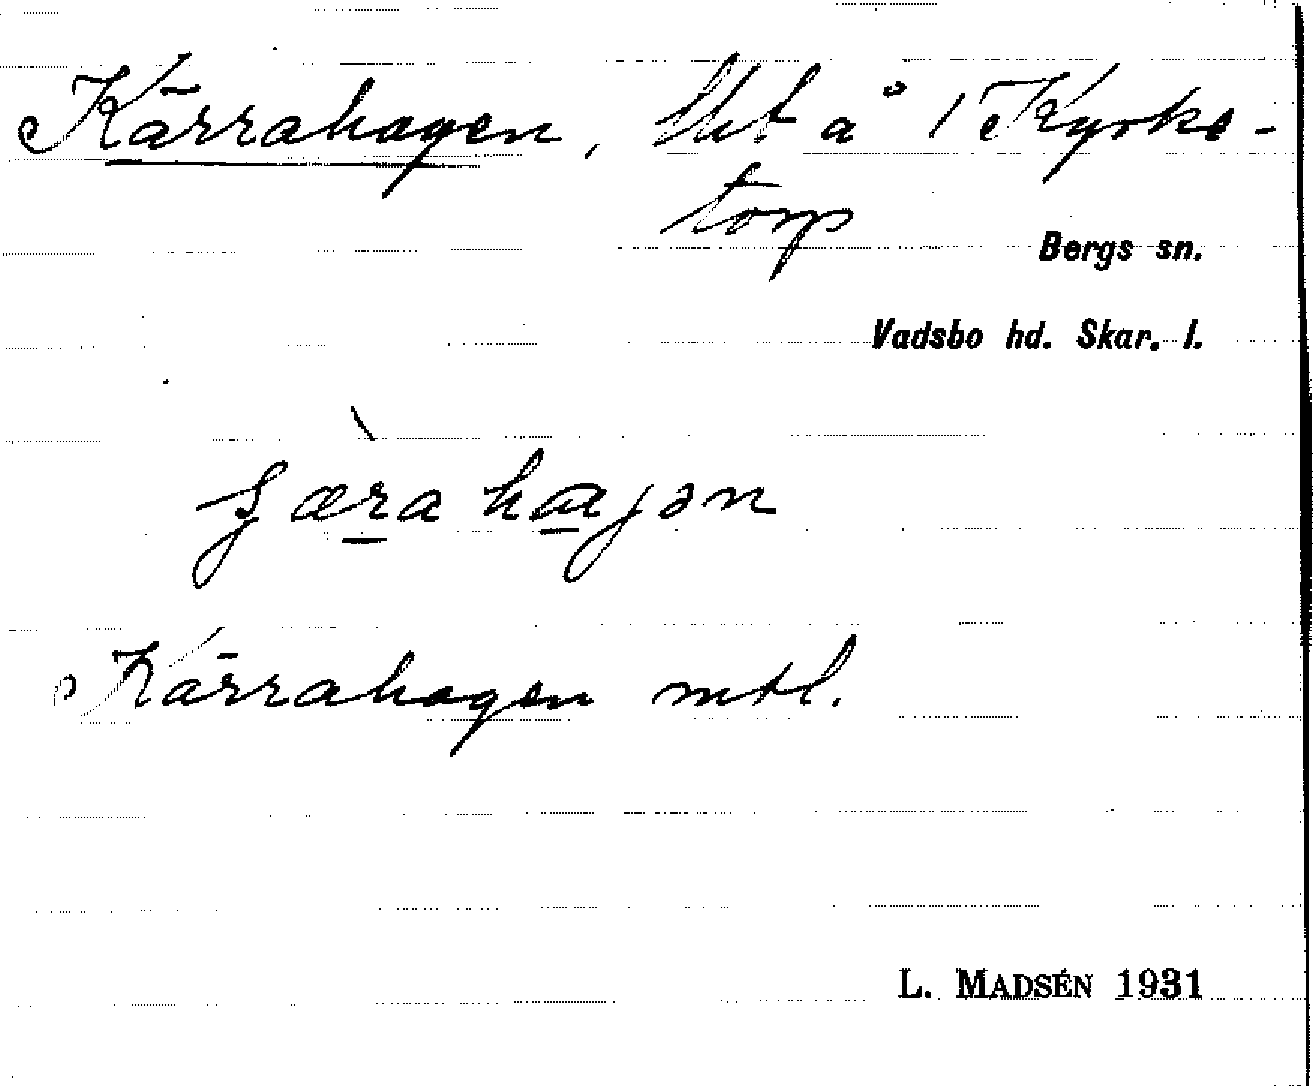 Kärrahagen, lht å 1 Kyrke-
torp
Bergs sn.
Vadsbo hd. Skar. l.
Kärrahagen mtl.
L. MADSÉN 1931